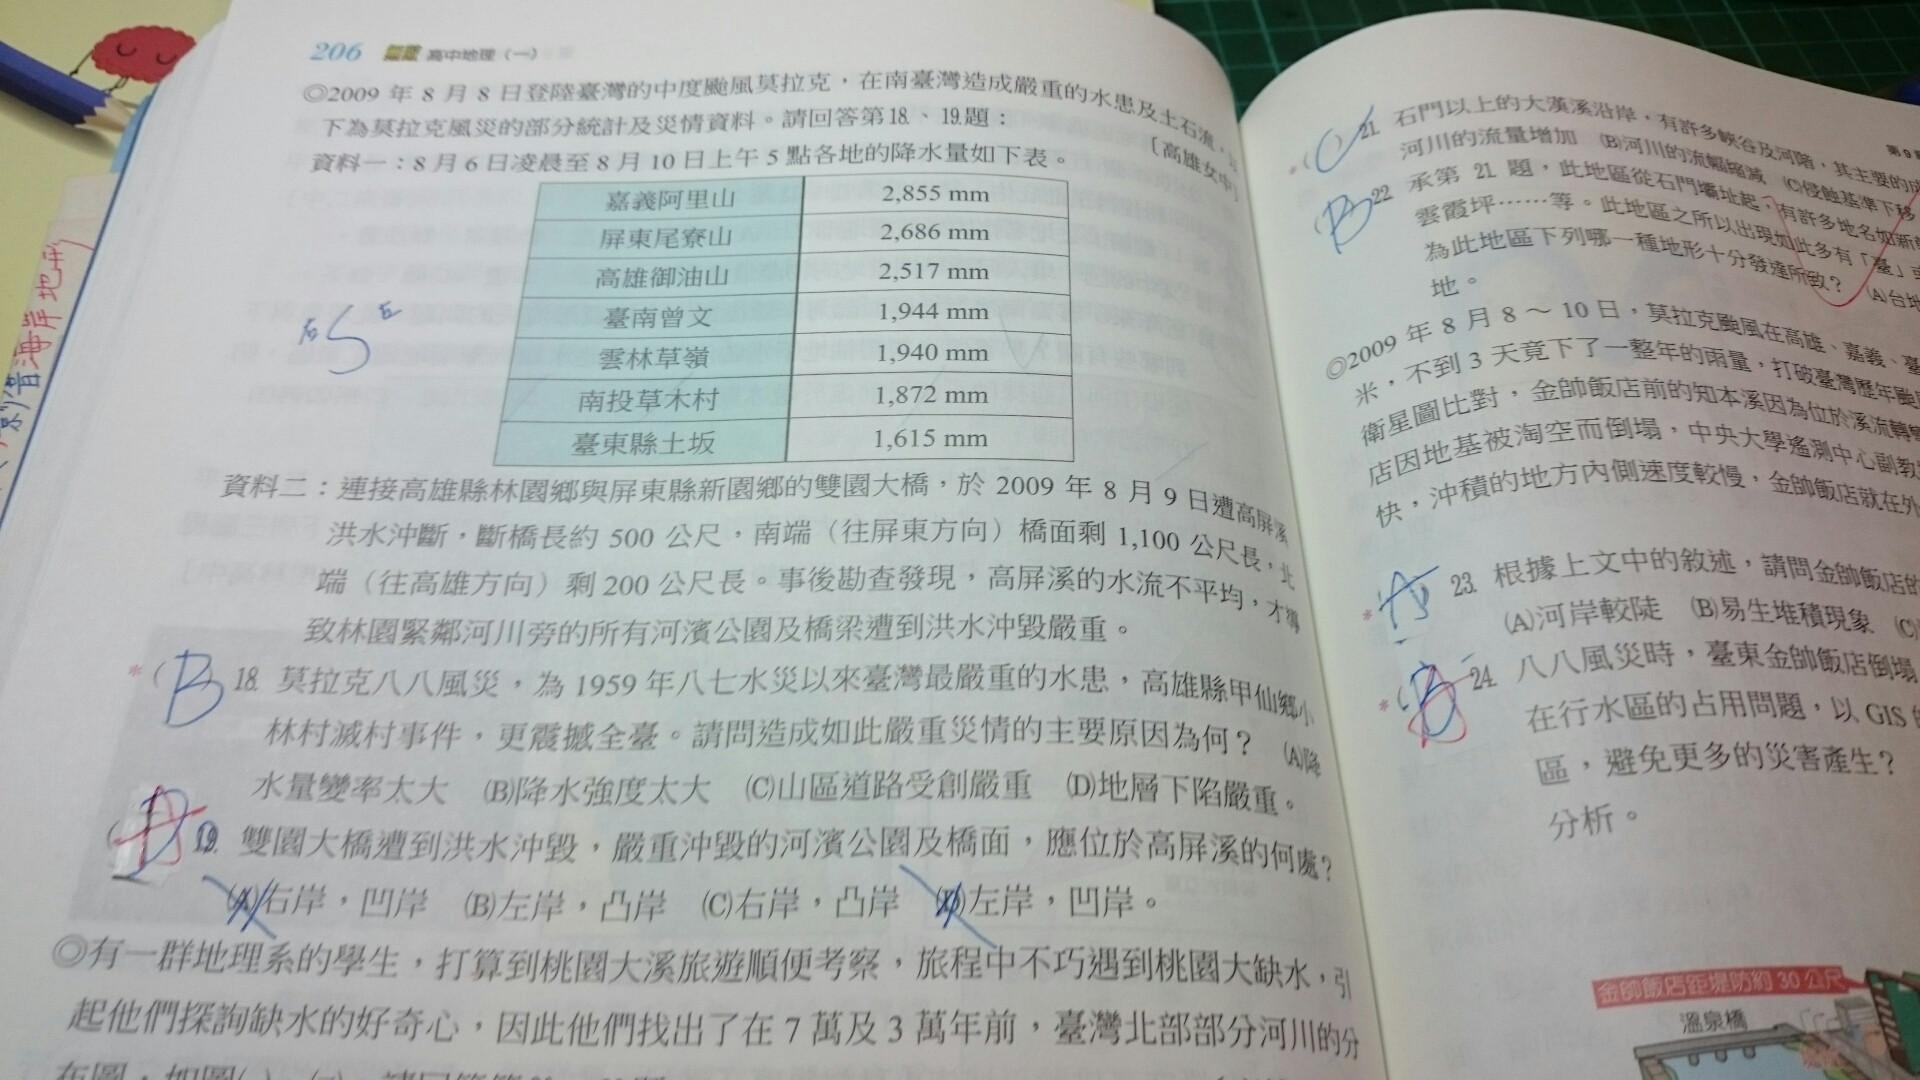 206 高中地理（一）
◎2009 年 8 月 8 日登陸臺灣的中度颱風莫拉克，在南臺灣造成嚴重的水患及土石流，
下為莫拉克風災的部分統計及災情資料。請回答第18.、19.題：
〔高雄女中〕
資料一：8 月 6 日凌晨至 8 月 10 日上午 5 點各地的降水量如下表。
嘉義阿里山 2,855 mm
屏東尾寮山 2,686 mm
高雄御油山 2,517 mm
臺南曾文 1,944 mm
雲林草嶺 1,940 mm
南投草木村 1,872 mm
臺東縣土坂 1,615 mm
資料二：連接高雄縣林園鄉與屏東縣新園鄉的雙園大橋，於 2009 年 8 月 9 日遭高屏溪
洪水沖斷，斷橋長約 500 公尺，南端（往屏東方向）橋面剩 1,100 公尺長，北
端（往高雄方向）剩 200 公尺長。事後勘查發現，高屏溪的水流不平均，才導
致林園緊鄰河川旁的所有河濱公園及橋梁遭到洪水沖毀嚴重。
*（B 18. 莫拉克八八風災，為 1959 年八七水災以來臺灣最嚴重的水患，高雄縣甲仙鄉小
林村滅村事件，更震撼全臺。請問造成如此嚴重災情的主要原因為何？ (A)降
水量變率太大 (B)降水強度太大 (C)山區道路受創嚴重 (D)地層下陷嚴重。
（ 19. 雙園大橋遭到洪水沖毀，嚴重沖毀的河濱公園及橋面，應位於高屏溪的何處？
(A)右岸，凹岸 (B)左岸，凸岸 (C)右岸，凸岸 (D)左岸，凹岸。
◎有一群地理系的學生，打算到桃園大溪旅遊順便考察，旅程中不巧遇到桃園大缺水，引
起他們探詢缺水的好奇心，因此他們找出了在 7 萬及 3 萬年前，臺灣北部部分河川的分
第 9
*（C 21. 石門以上的大漢溪沿岸，有許多峽谷及河階，其主要的
河川的流量增加 (B)河川的流幅縮減 (C)侵蝕基準下移
（B 22. 承第 21 題，此地區從石門壩址起，有許多地名如新
雲霞坪……等。此地區之所以出現如此多有「臺」
為此地區下列哪一種地形十分發達所致？ (A)台地
地。
◎2009 年 8 月 8 ～ 10 日，莫拉克颱風在高雄、嘉義、
米，不到 3 天竟下了一整年的雨量，打破臺灣歷年颱
衛星圖比對，金帥飯店前的知本溪因為位於溪流轉彎
店因地基被淘空而倒塌，中央大學遙測中心副教
快，沖積的地方內側速度較慢，金帥飯店就在外
*（A 23. 根據上文中的敘述，請問金帥飯店的
(A)河岸較陡 (B)易生堆積現象 (C)
*（ 24. 八八風災時，臺東金帥飯店倒塌
在行水區的占用問題，以 GIS
區，避免更多的災害產生？
分析。
金帥飯店距堤防約 30 公尺
溫泉橋